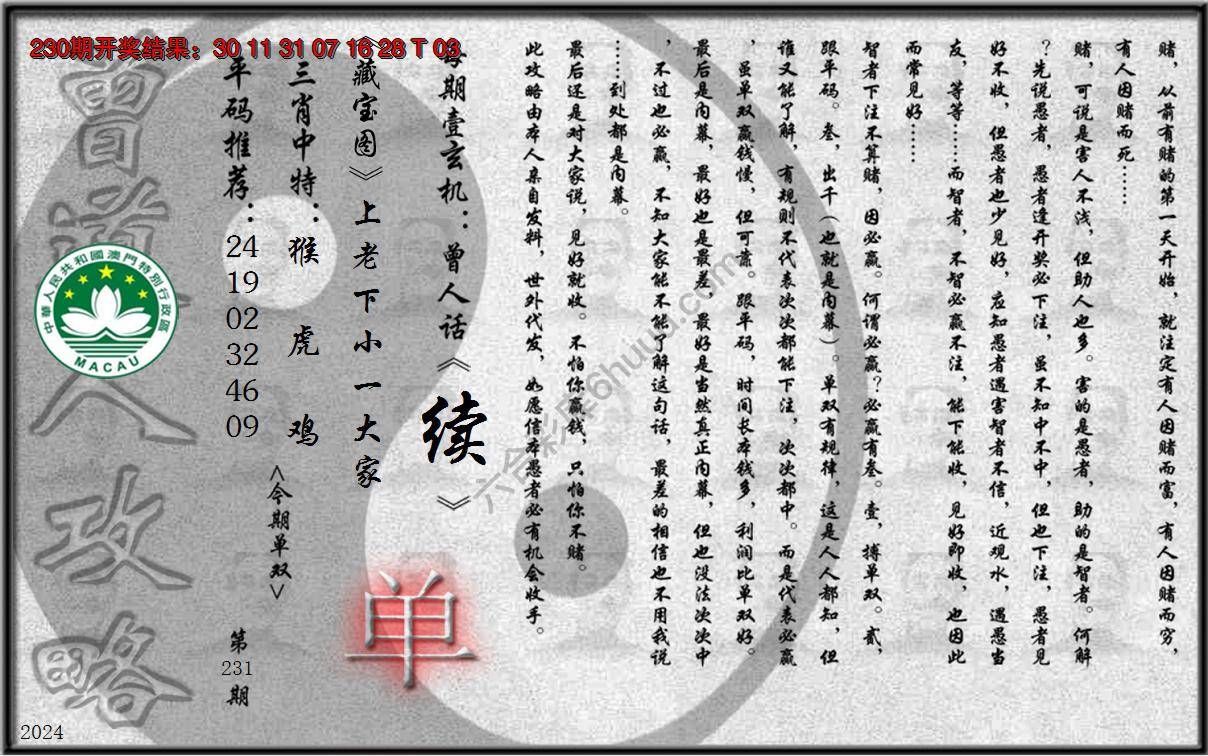 230期开奖结果：30 11 31 07 16 28 T 03
赌，从前有赌的第一天开始，就注定有人因赌而富，有人因赌而穷，
有人因赌而死……
赌，可说是害人不浅，但助人也多。害的是愚者，助的是智者。何解
？先说愚者，愚者逢开奖必下注，虽不知中不中，但也下注，愚者见
好不收，但愚者也少见好，应知愚者遇害智者不信，近观水，遇愚当
友，等等……而智者，不智必赢不注，能下能收，见好即收，也因此
而常见好……
智者下注不算赌，因必赢。何谓必赢？必赢有叁。壹，搏单双。贰，
跟平码。叁，出千（也就是内幕）。单双有规律，这是人人都知，但
谁又能了解，有规则不代表次次都能下注，次次都中。而是代表必赢
，虽单双赢钱慢，但可靠。跟平码，时间长本钱多，利润比单双好。
最后是内幕，最好也是最差，最好是当然真正内幕，但也没法次次中
，不过也必赢，不知大家能不能了解这句话，最差的相信也不用我说
……到处都是内幕。
最后还是对大家说，见好就收。不怕你赢钱，只怕你不赌。
此攻略由本人亲自发料，世外代发，如愿信本愚者必有机会收手。
每期壹玄机：曾人话《续》
《藏宝图》上老下小一大家
单
三肖中特：猴 虎 鸡
<今期单双>
平码推荐：24 19 02 32 46 09
第231期
曾道人攻略
中華人民共和國澳門特別行政區
MACAU
六合彩库6huuu.com
2024